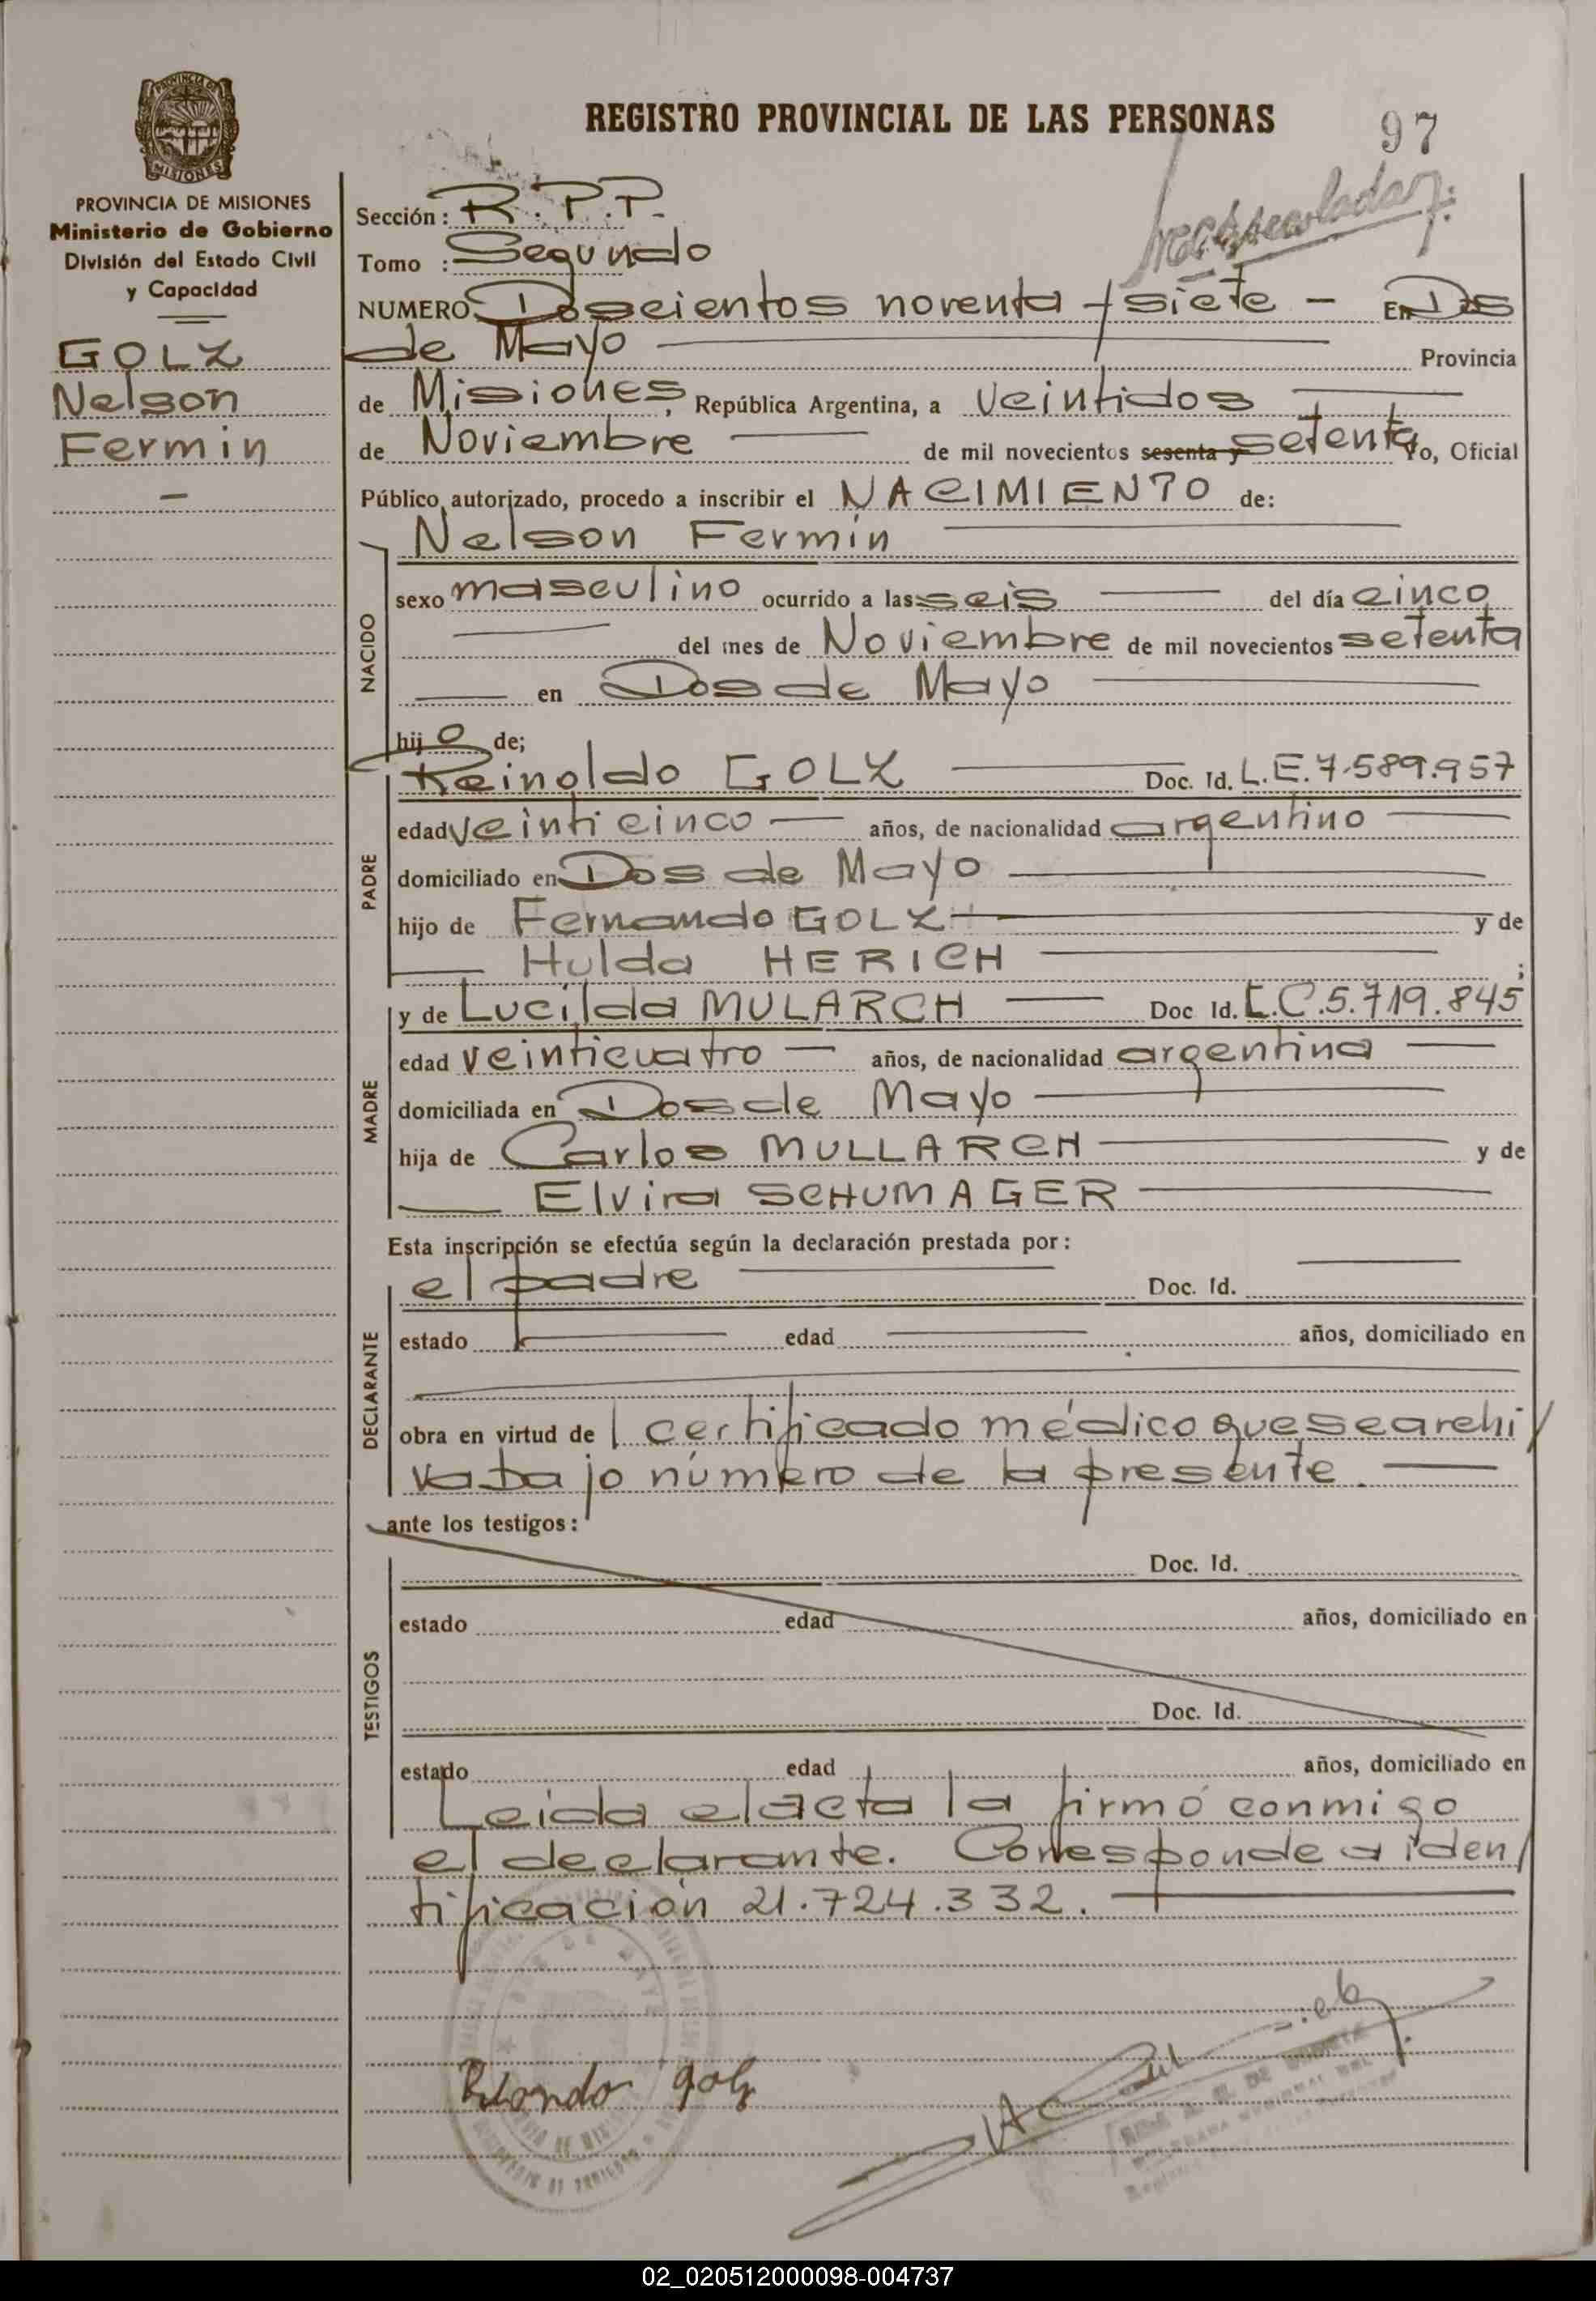 REGISTRO PROVINCIAL DE LAS PERSONAS
97
PROVINCIA DE
MISIONES
PROVINCIA DE MISIONES
Ministerio de Gobierno
División del Estado Civil
y Capacidad
GOLZ
Nelson
Fermin
Sección: R.P.P.
Tomo : Segundo
NUMERO Doscientos noventa y siete - En Dos
de Mayo Provincia
de Misiones, República Argentina, a veintidos
de Noviembre de mil novecientos sesenta y setenta Yo, Oficial
Público autorizado, procedo a inscribir el NACIMIENTO de:
Nelson Fermín
NACIDO
sexo masculino ocurrido a las seis del día cinco
del mes de Noviembre de mil novecientos setenta
en Dos de Mayo
hijo de;
Reinoldo GOLZ Doc. Id. L.E.7.589.957
PADRE
edad veinticinco años, de nacionalidad argentino
domiciliado en Dos de Mayo
hijo de Fernando GOLZ y de
Hulda HERICH ;
y de Lucilda MULARCH Doc Id. L.C.5.719.845
MADRE
edad veinticuatro años, de nacionalidad argentina
domiciliada en Dos de Mayo
hija de Carlos MULLARCH y de
Elvira SCHUMAGER
Esta inscripción se efectúa según la declaración prestada por:
el padre Doc. Id.
DECLARANTE
estado edad años, domiciliado en
obra en virtud de l certificado médico que se archi/
va bajo número de la presente.
ante los testigos:
TESTIGOS
Doc. Id.
estado edad años, domiciliado en
Doc. Id.
estado edad años, domiciliado en
Leida el acta la firmó conmigo
el declarante. Corresponde a iden/
tificación 21.724.332.
golz
02_020512000098-004737